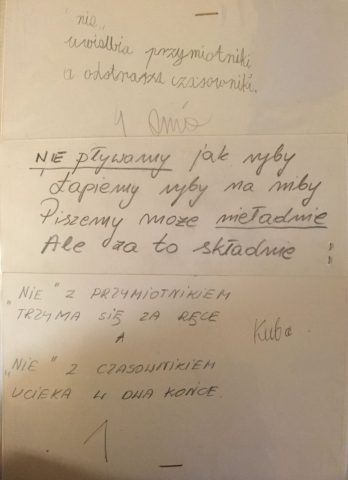 "nie"
uwielbia przymiotniki
a odstrasza czasowniki.
NIE pływamy jak ryby
Łapiemy ryby na niby
Piszemy może nieładnie
Ale za to składnie
"NIE" Z PRZYMIOTNIKIEM
TRZYMA SIĘ ZA RĘCE
A
Kuba
"NIE" Z CZASOWNIKIEM
UCIEKA W DWA KOŃCE.